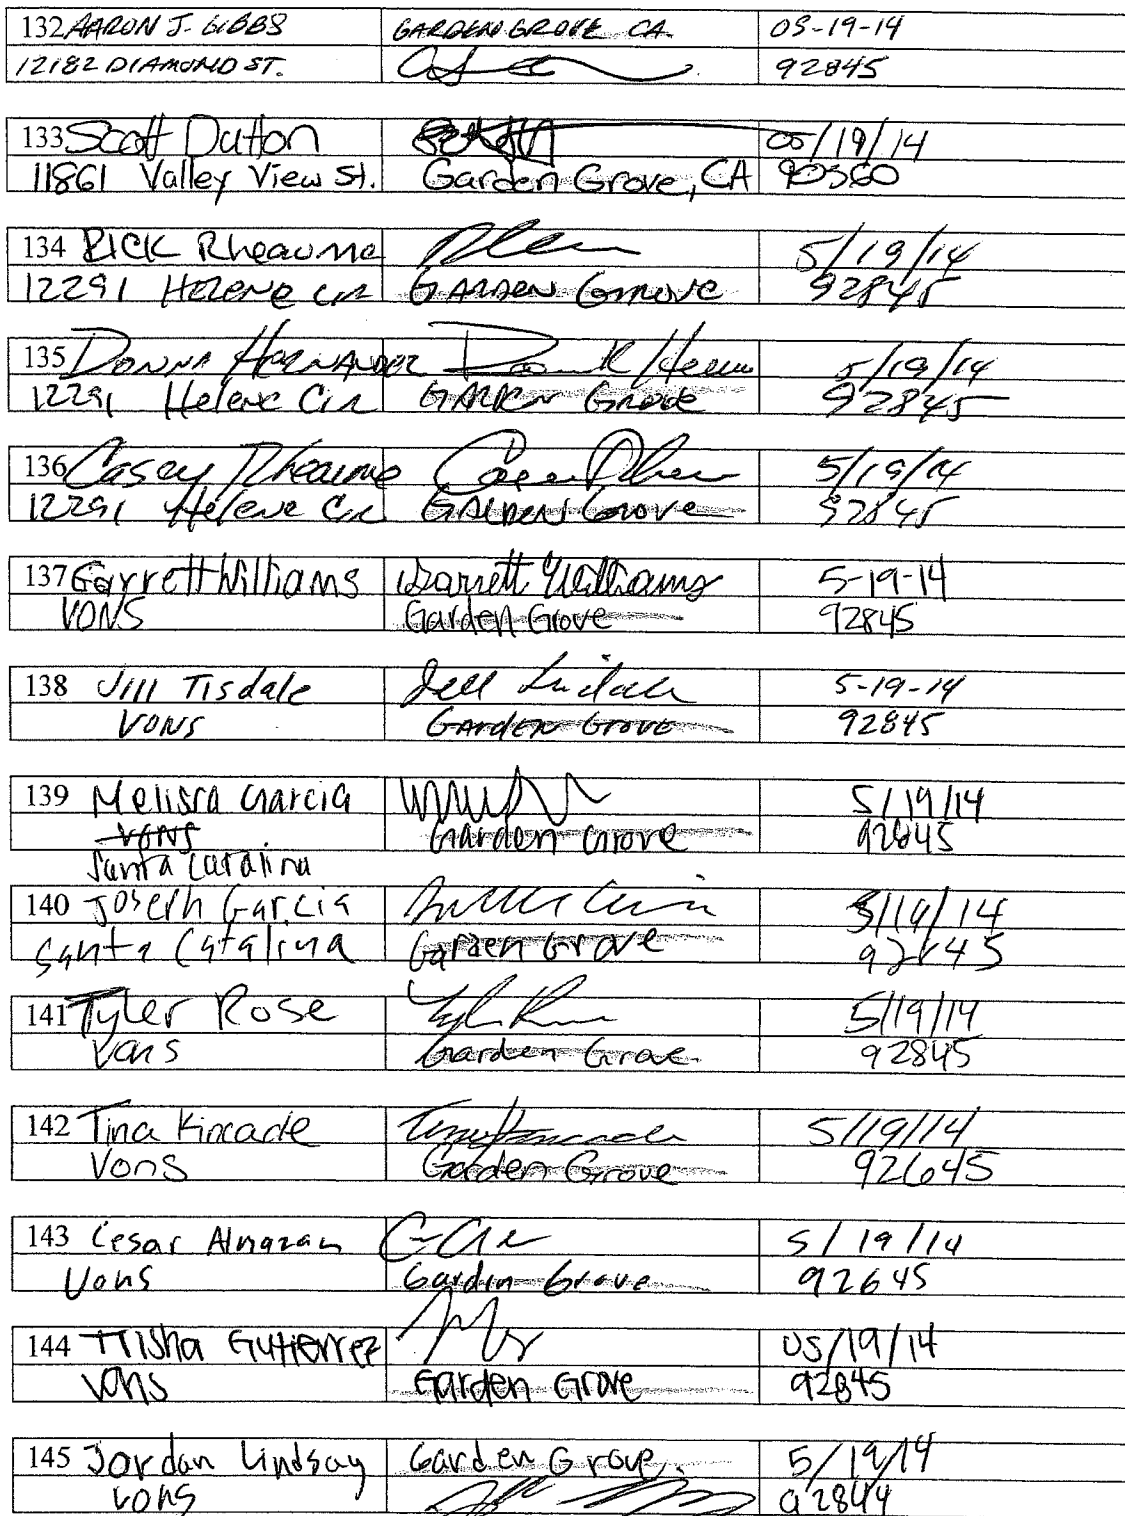 132 AARON J. GIBBS GARDEN GROVE CA. 05-19-14
12182 DIAMOND ST. 92845
133 Scott Dutton 05/19/14
11861 Valley View St. Garden Grove, CA 90560
134 RICK Rheaume 5/19/14
12291 HELENE CIR GARDEN GROVE 92845
135 DONNA HERNANDEZ 5/19/14
12291 Helene Cir GARDEN GROVE 92845
136 Casey Rheaume 5/19/14
12291 Helene Cir GARDEN Grove 92845
137 Garrett Williams Garrett Williams 5-19-14
VONS Garden Grove 92845
138 Jill Tisdale Jill Tisdale 5-19-14
VONS GArden Grove 92845
139 Melissa Garcia 5/19/14
VONS Garden Grove 92845
Santa Catalina
140 Joseph Garcia 5/19/14
Santa Catalina Garden Grove 92845
141 Tyler Rose 5/19/14
Vons Garden Grove 92845
142 Tina Kincade Tina Kincade 5/19/14
Vons Garden Grove 92645
143 Cesar Almazan 5/19/14
Vons Gardin Grove 92645
144 Trisha Gutierrez 05/19/14
Vons Garden Grove 92845
145 Jordan Lindsay Garden Grove. 5/19/14
Vons 92844